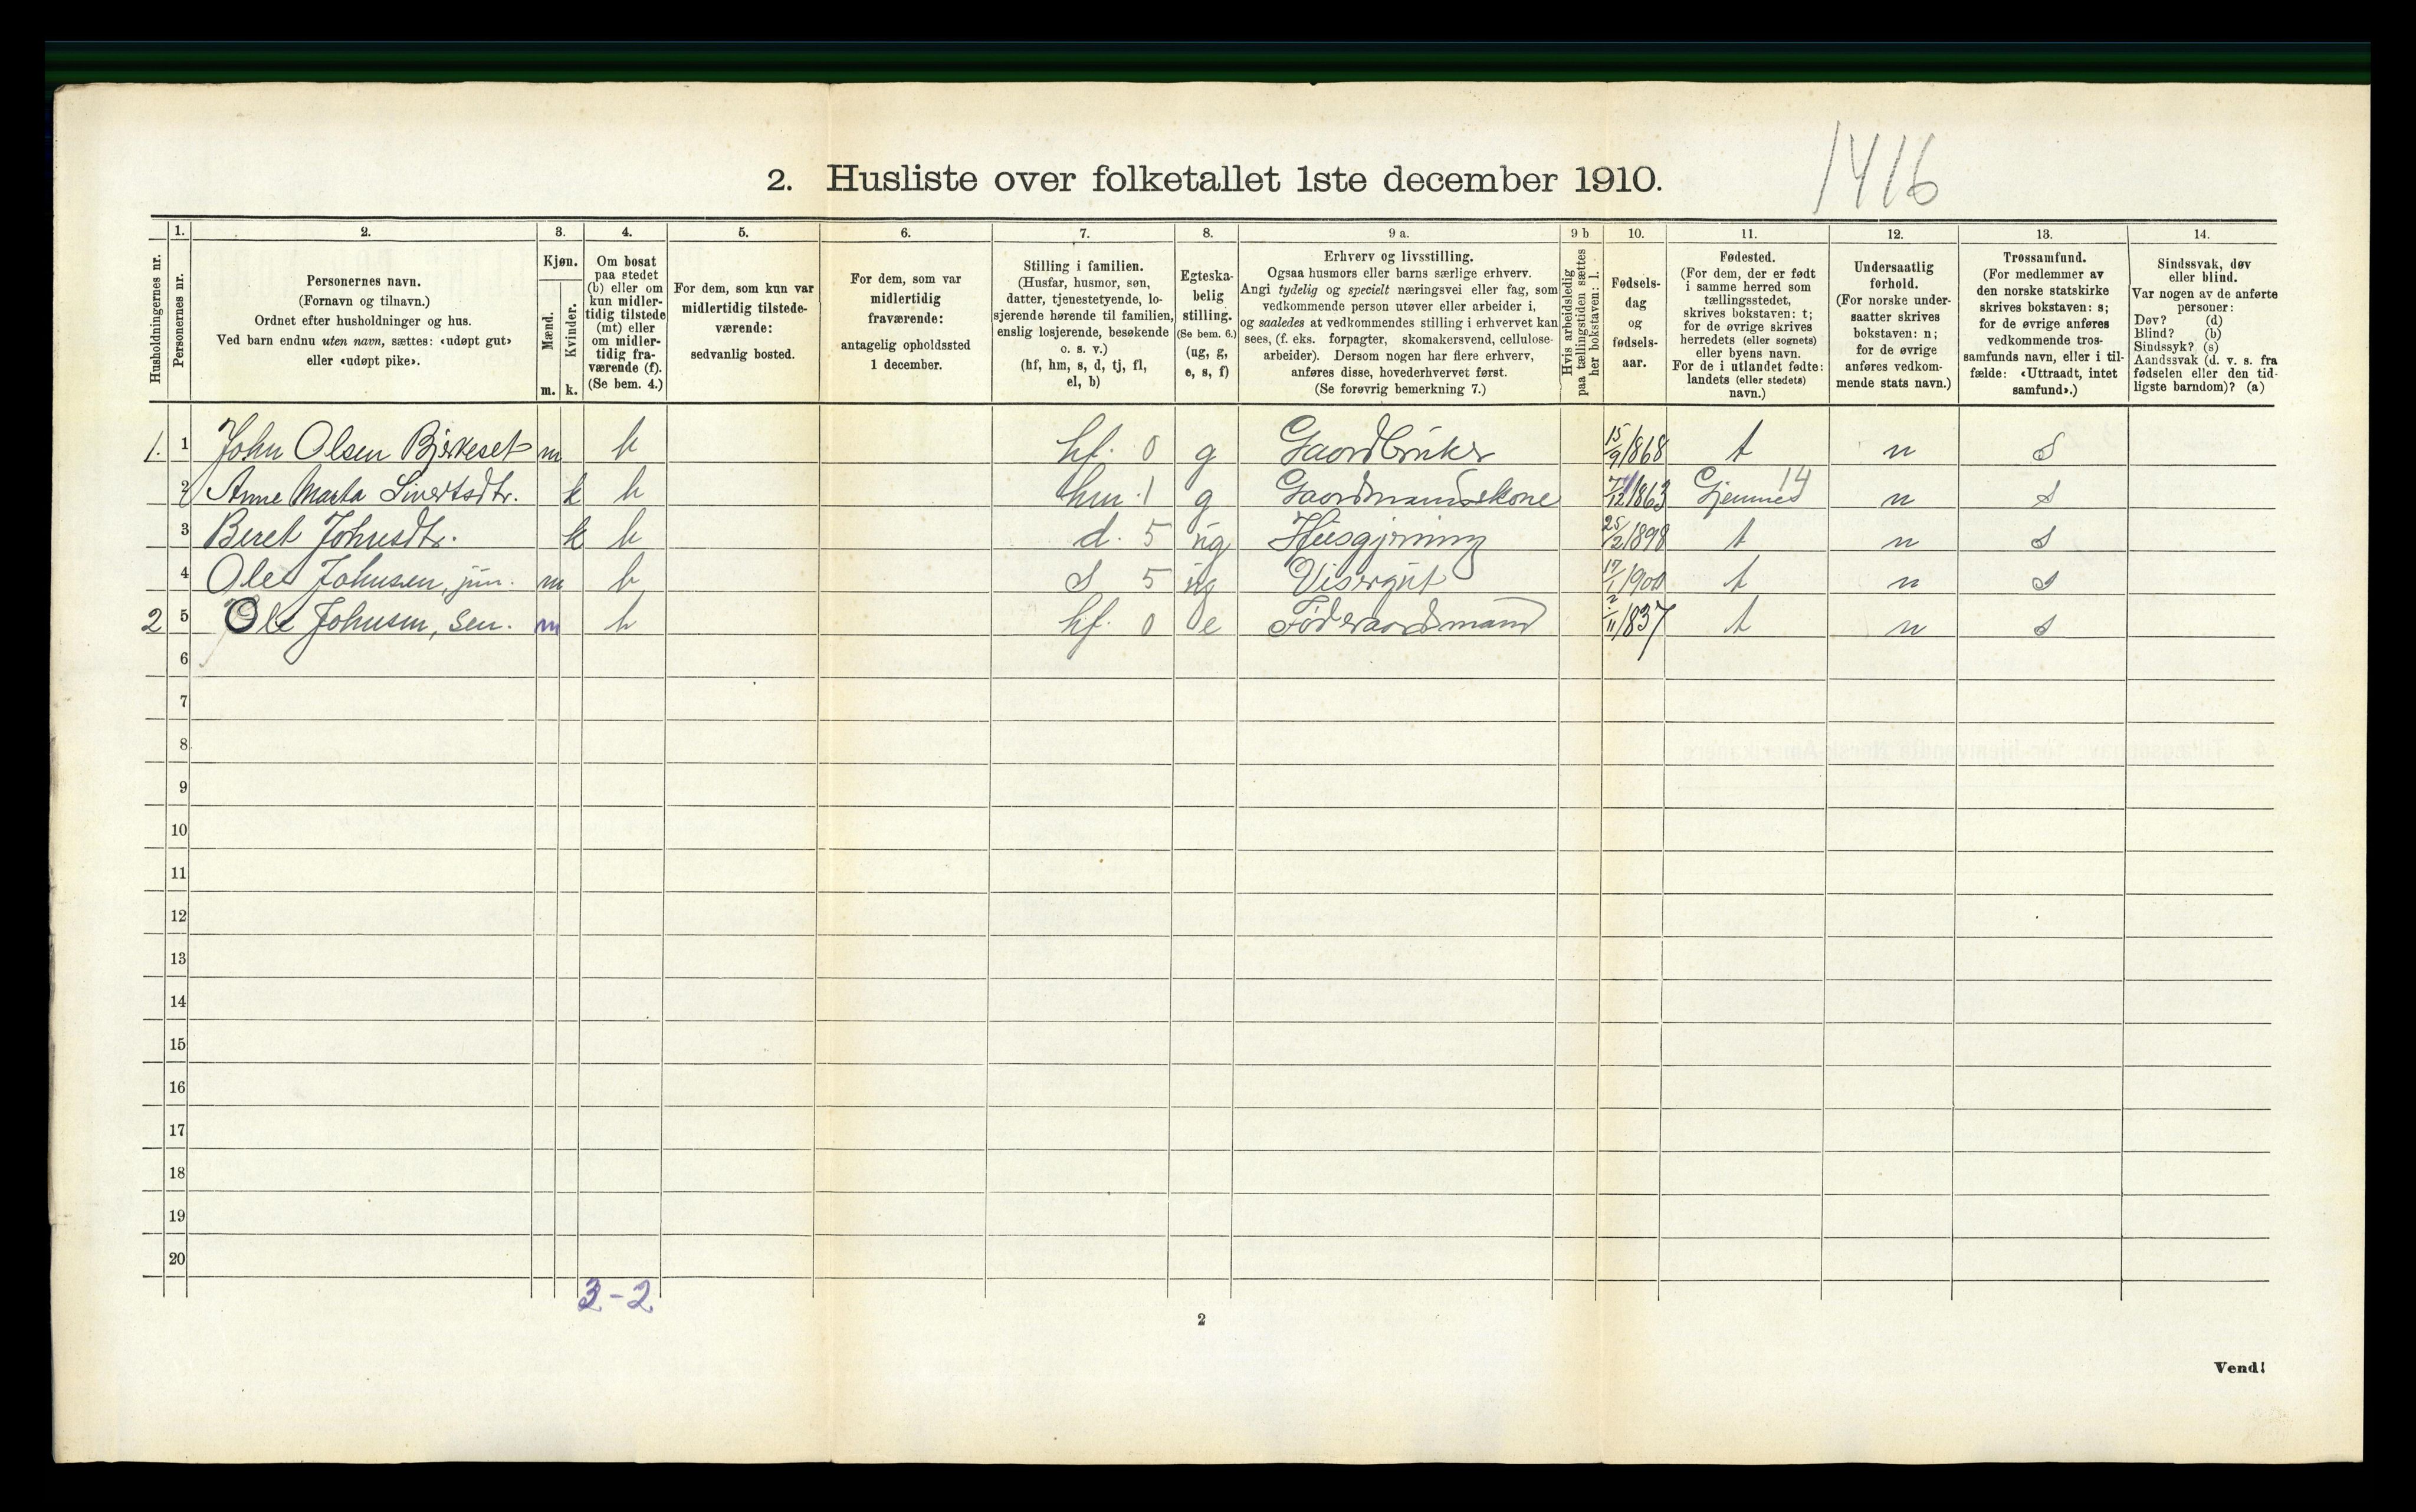 1416
2. Husliste over folketallet 1ste december 1910.
Husholdningernes nr.
1.
Personernes nr.
2.
Personernes navn.
(Fornavn og tilnavn.)
Ordnet efter husholdninger og hus.
Ved barn endnu uten navn, sættes: «udøpt gut»
eller «udøpt pike».
3.
Kjøn.
Mænd.
Kvinder.
m. k.
4.
Om bosat
paa stedet
(b) eller om
kun midler-
tidig tilstede
(mt) eller
om midler-
tidig fra-
værende (f).
(Se bem. 4.)
5.
For dem, som kun var
midlertidig tilstede-
værende:
sedvanlig bosted.
6.
For dem, som var
midlertidig
fraværende:
antagelig opholdssted
1 december.
7.
Stilling i familien.
(Husfar, husmor, søn,
datter, tjenestetyende, lo-
sjerende hørende til familien,
enslig losjerende, besøkende
o. s. v.)
(hf, hm, s, d, tj, fl,
el, b)
8.
Egteska-
belig
stilling.
(Se bem. 6.)
(ug, g,
e, s, f)
9 a.
Erhverv og livsstilling.
Ogsaa husmors eller barns særlige erhverv.
Angi tydelig og specielt næringsvei eller fag, som
vedkommende person utøver eller arbeider i,
og saaledes at vedkommendes stilling i erhvervet kan
sees, (f. eks. forpagter, skomakersvend, cellulose-
arbeider). Dersom nogen har flere erhverv,
anføres disse, hovederhvervet først.
(Se forøvrig bemerkning 7.)
9 b
Hvis arbeidsledig
paa tællingstiden sættes
her bokstaven: l.
10.
Fødsels-
dag
og
fødsels-
aar.
11.
Fødested.
(For dem, der er født
i samme herred som
tællingsstedet,
skrives bokstaven: t;
for de øvrige skrives
herredets (eller sognets)
eller byens navn.
For de i utlandet fødte:
landets (eller stedets)
navn.)
12.
Undersaatlig
forhold.
(For norske under-
saatter skrives
bokstaven: n;
for de øvrige
anføres vedkom-
mende stats navn.)
13.
Trossamfund.
(For medlemmer av
den norske statskirke
skrives bokstaven: s;
for de øvrige anføres
vedkommende tros-
samfunds navn, eller i til-
fælde: «Uttraadt, intet
samfund».)
14.
Sindssvak, døv
eller blind.
Var nogen av de anførte
personer:
Døv? (d)
Blind? (b)
Sindssyk? (s)
Aandssvak (d. v. s. fra
fødselen eller den tid-
ligste barndom)? (a)
1. 1 John Olsen Bjerkeset m b hf. 0 g Gaardbruker 15/9 1868 t n s
2 Anne Marta Sivertsdtr. k b hm. 1 g Gaardmandskone /12 1863 Gjemnes 14 n s
3 Beret Johnsdtr. k b d. 5 ug Husgjerning 25/2 1898 t n s
4 Ole Johnsen, jun. m b s 5 ug Visergut 17/1 1900 t n s
2 5 Ole Johnsen, sen. m b hf. 0 e Føderaadsmand /11 1837 t n s
6
7
8
9
10
11
12
13
14
15
16
17
18
19
20
3-2
2
Vend!